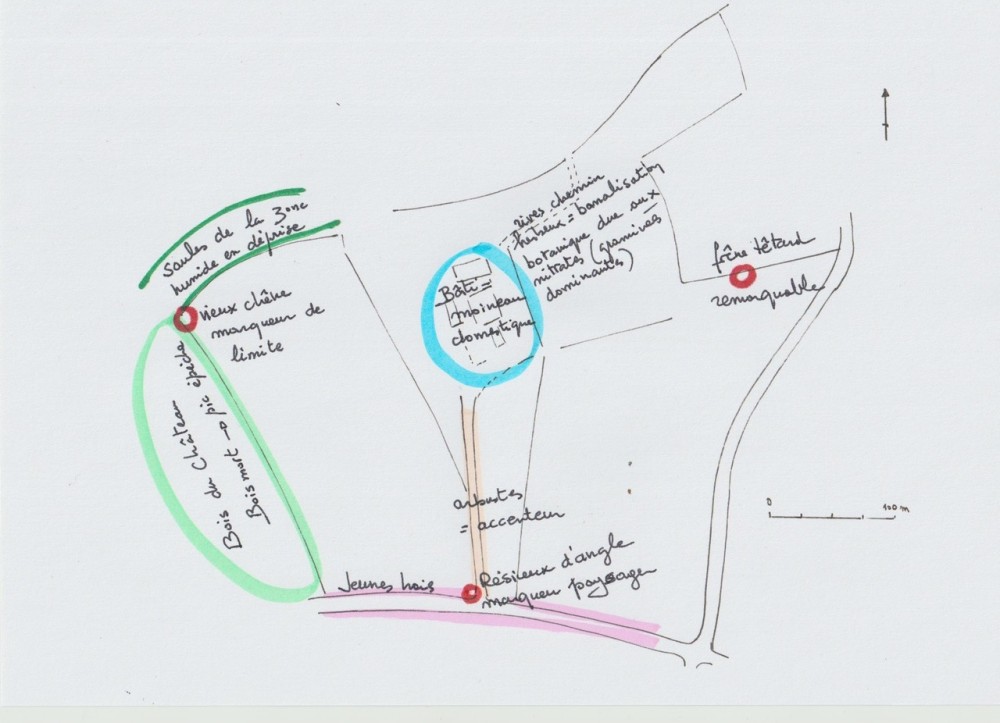 saules de la zone
humide en déprise
vieux chêne
marqueur de
limite
Bois du Château
Bois mort → pic épeiche
Bâti =
moineau
domestique
rives chemin
herbeux = banalisation
botanique due aux
nitrates (graminées
dominantes)
frêne têtard
remarquable
arbustes
= accenteur
Jeunes bois
Résineux d'angle
marqueur paysager
0 100 m